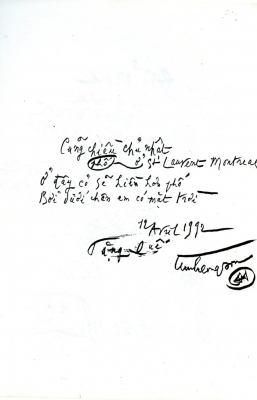 Cũng chiều chủ nhật
phố ở St Laurent Montreal
ở đây cỏ sẽ hiền hơn phố
Bởi dưới chân em có mặt trời
12 Avril 1992
Tặng Quế